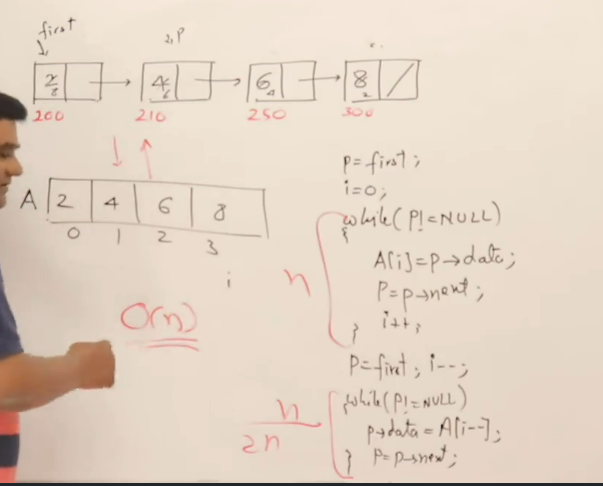 first
↓P
2 8
4 6
6 4
8 2
200 210 250 300
A 2 4 6 8
0 1 2 3
i
O(n)
P=first;
i=0;
while(P!=NULL)
{
A[i]=P→data;
P=P→next;
i++;
}
n
P=first; i--;
while(P!=NULL)
{
P→data=A[i--];
P=P→next;
}
n
2n